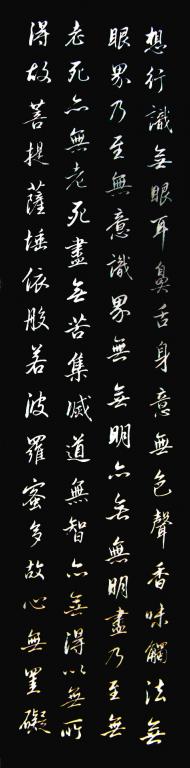 想行識無眼耳鼻舌身意無色聲香味觸法無
眼界乃至無意識界無無明亦無無明盡乃至無
老死亦無老死盡無苦集滅道無智亦無得以無所
得故菩提薩埵依般若波羅蜜多故心無罣礙